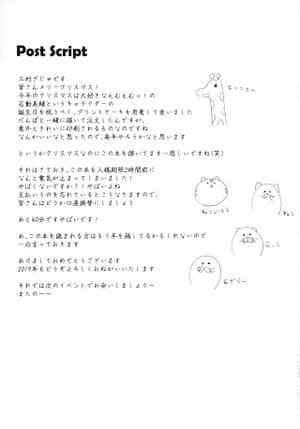 Post Script
三村ざじゃです
皆さんメリークリスマス！
今年のクリスマスは大好きなえむえむっ！の
石動美緒というキャラクターの
誕生日を祝うべく、プリントケーキを用意して食いました
だんぱと一緒に描いて注文したんですが、
意外ときれいに印刷されるものなのですね
なんかいいなと思ったので、毎年やろうかなと思います
というかクリスマスなのにこの本を描いてます…悲しいですね(笑)
それはさておき、この本を入稿期限2時間前に
なんと電気が止まってしまいました！
やばくないですか？！やばいよね
支払いうのを忘れているとこうなりますので、
皆さんはどうか口座振替にしましょう
あと40分ですやばいです！
あ、この本を読まれる方はもう年を越してるかもしれないので
一応言っておきます
あけましておめでとうございます
2019年もどうぞよろしくおねがいいたします
それでは次のイベントでお会いしましょうー
またのーー
きりんさん
ねこ
らっこ